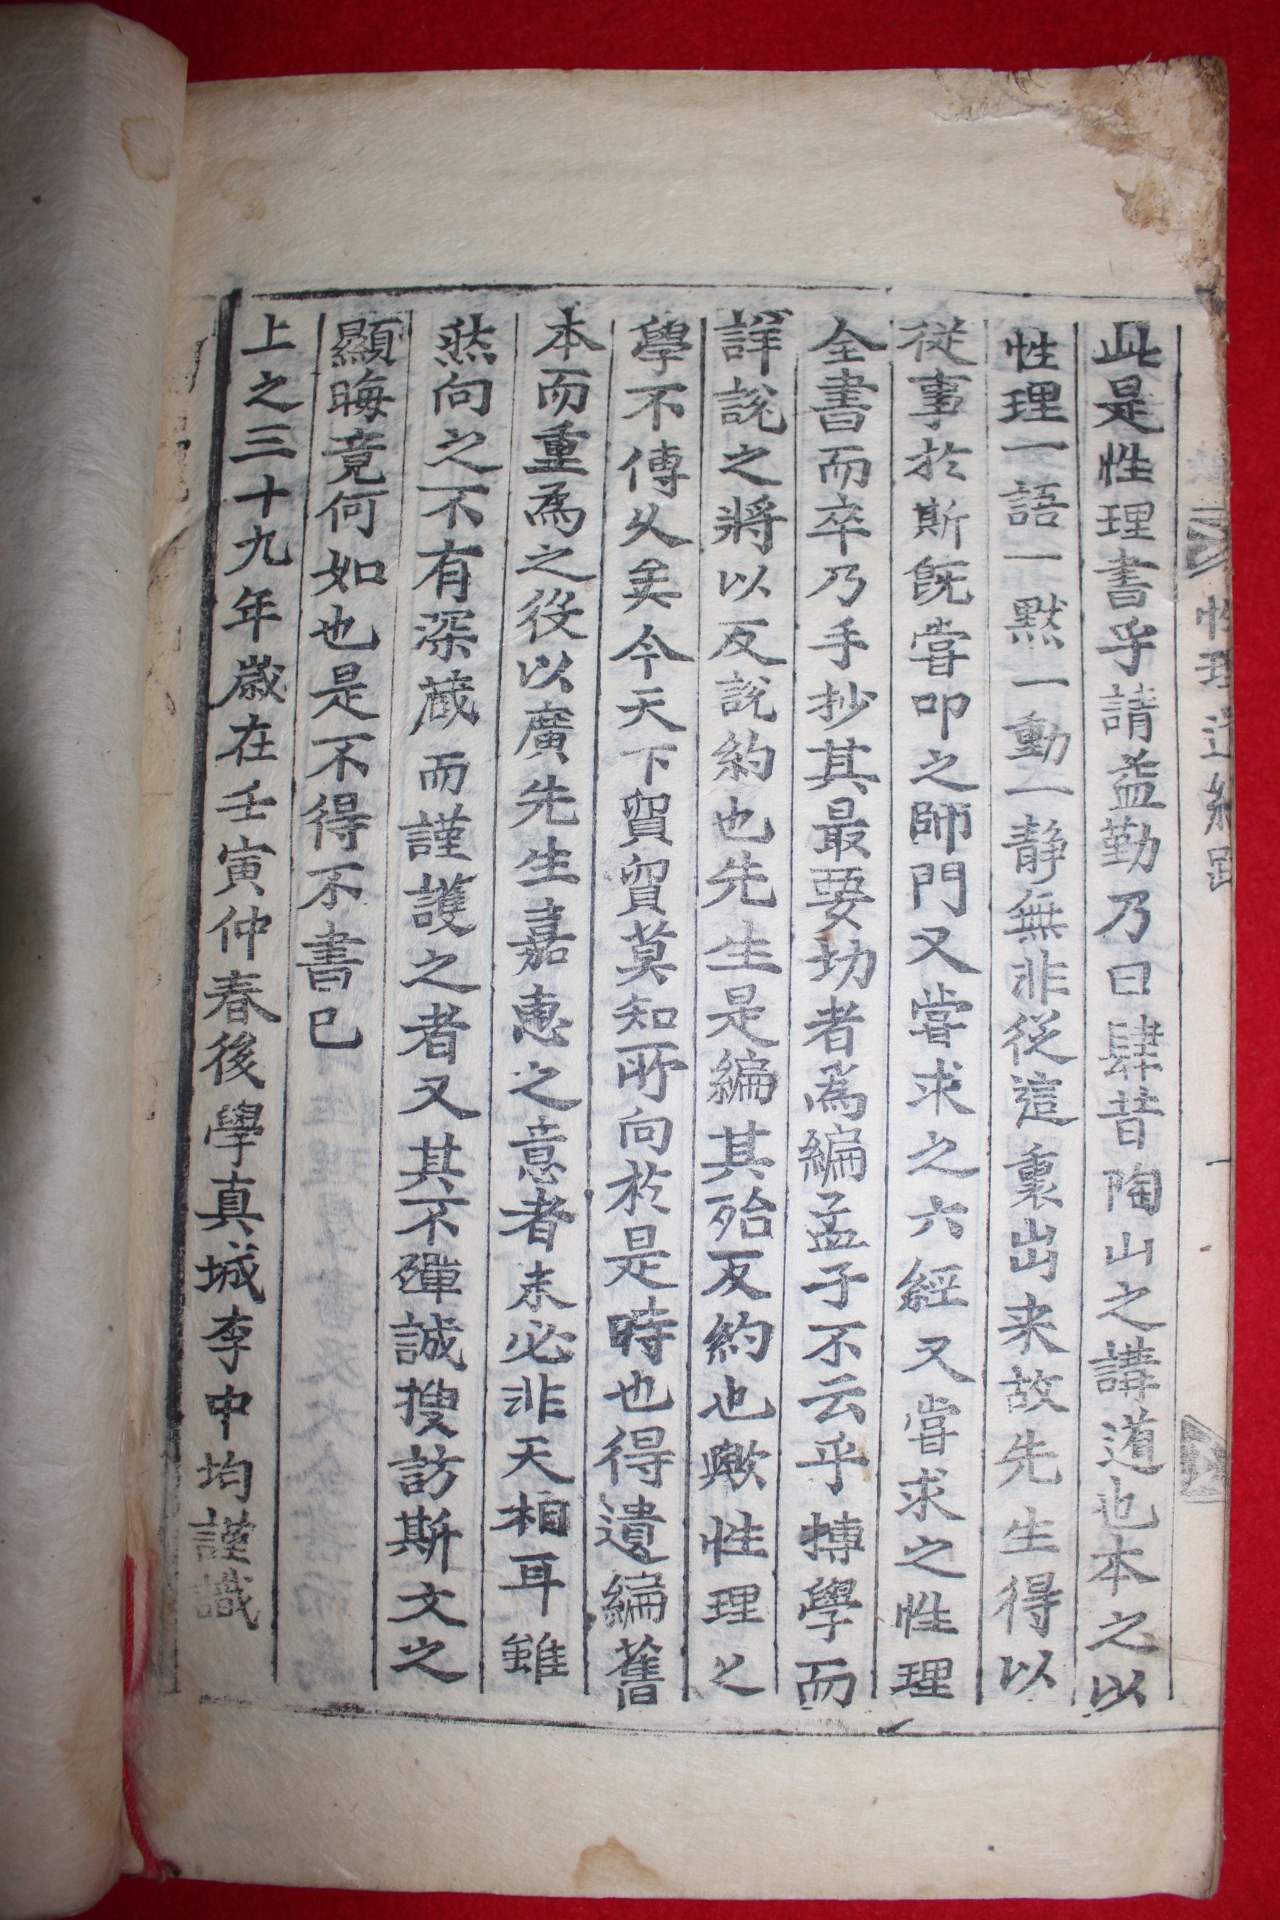 性理
此是性理書乎請益勤乃曰肆昔陶山之講道也本之以
性理一語一默一動一靜無非從這裏出来故先生得以
従事於斯旣嘗叩之師門又嘗求之六經又嘗求之性理
全書而卒乃手抄其最要切者爲編孟子不云乎博學而
詳說之將以反說約也先生是編其殆反約也歟性理之
學不傳久矣今天下貿貿莫知所向於是時也得遺編舊
本而重爲之役以廣先生嘉惠之意者未必非天相耳雖
然向之不有深蔵而謹護之者又其不殫誠搜訪斯文之
顯晦竟何如也是不得不書已
上之三十九年歲在壬寅仲春後學真城李中均謹識